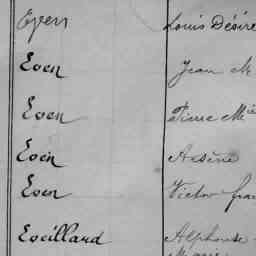 Even Louis Désiré
Even Jean M
Even Pierre Mie
Even Arsène
Even Victor fra
Eveillard Alphonse
Marie